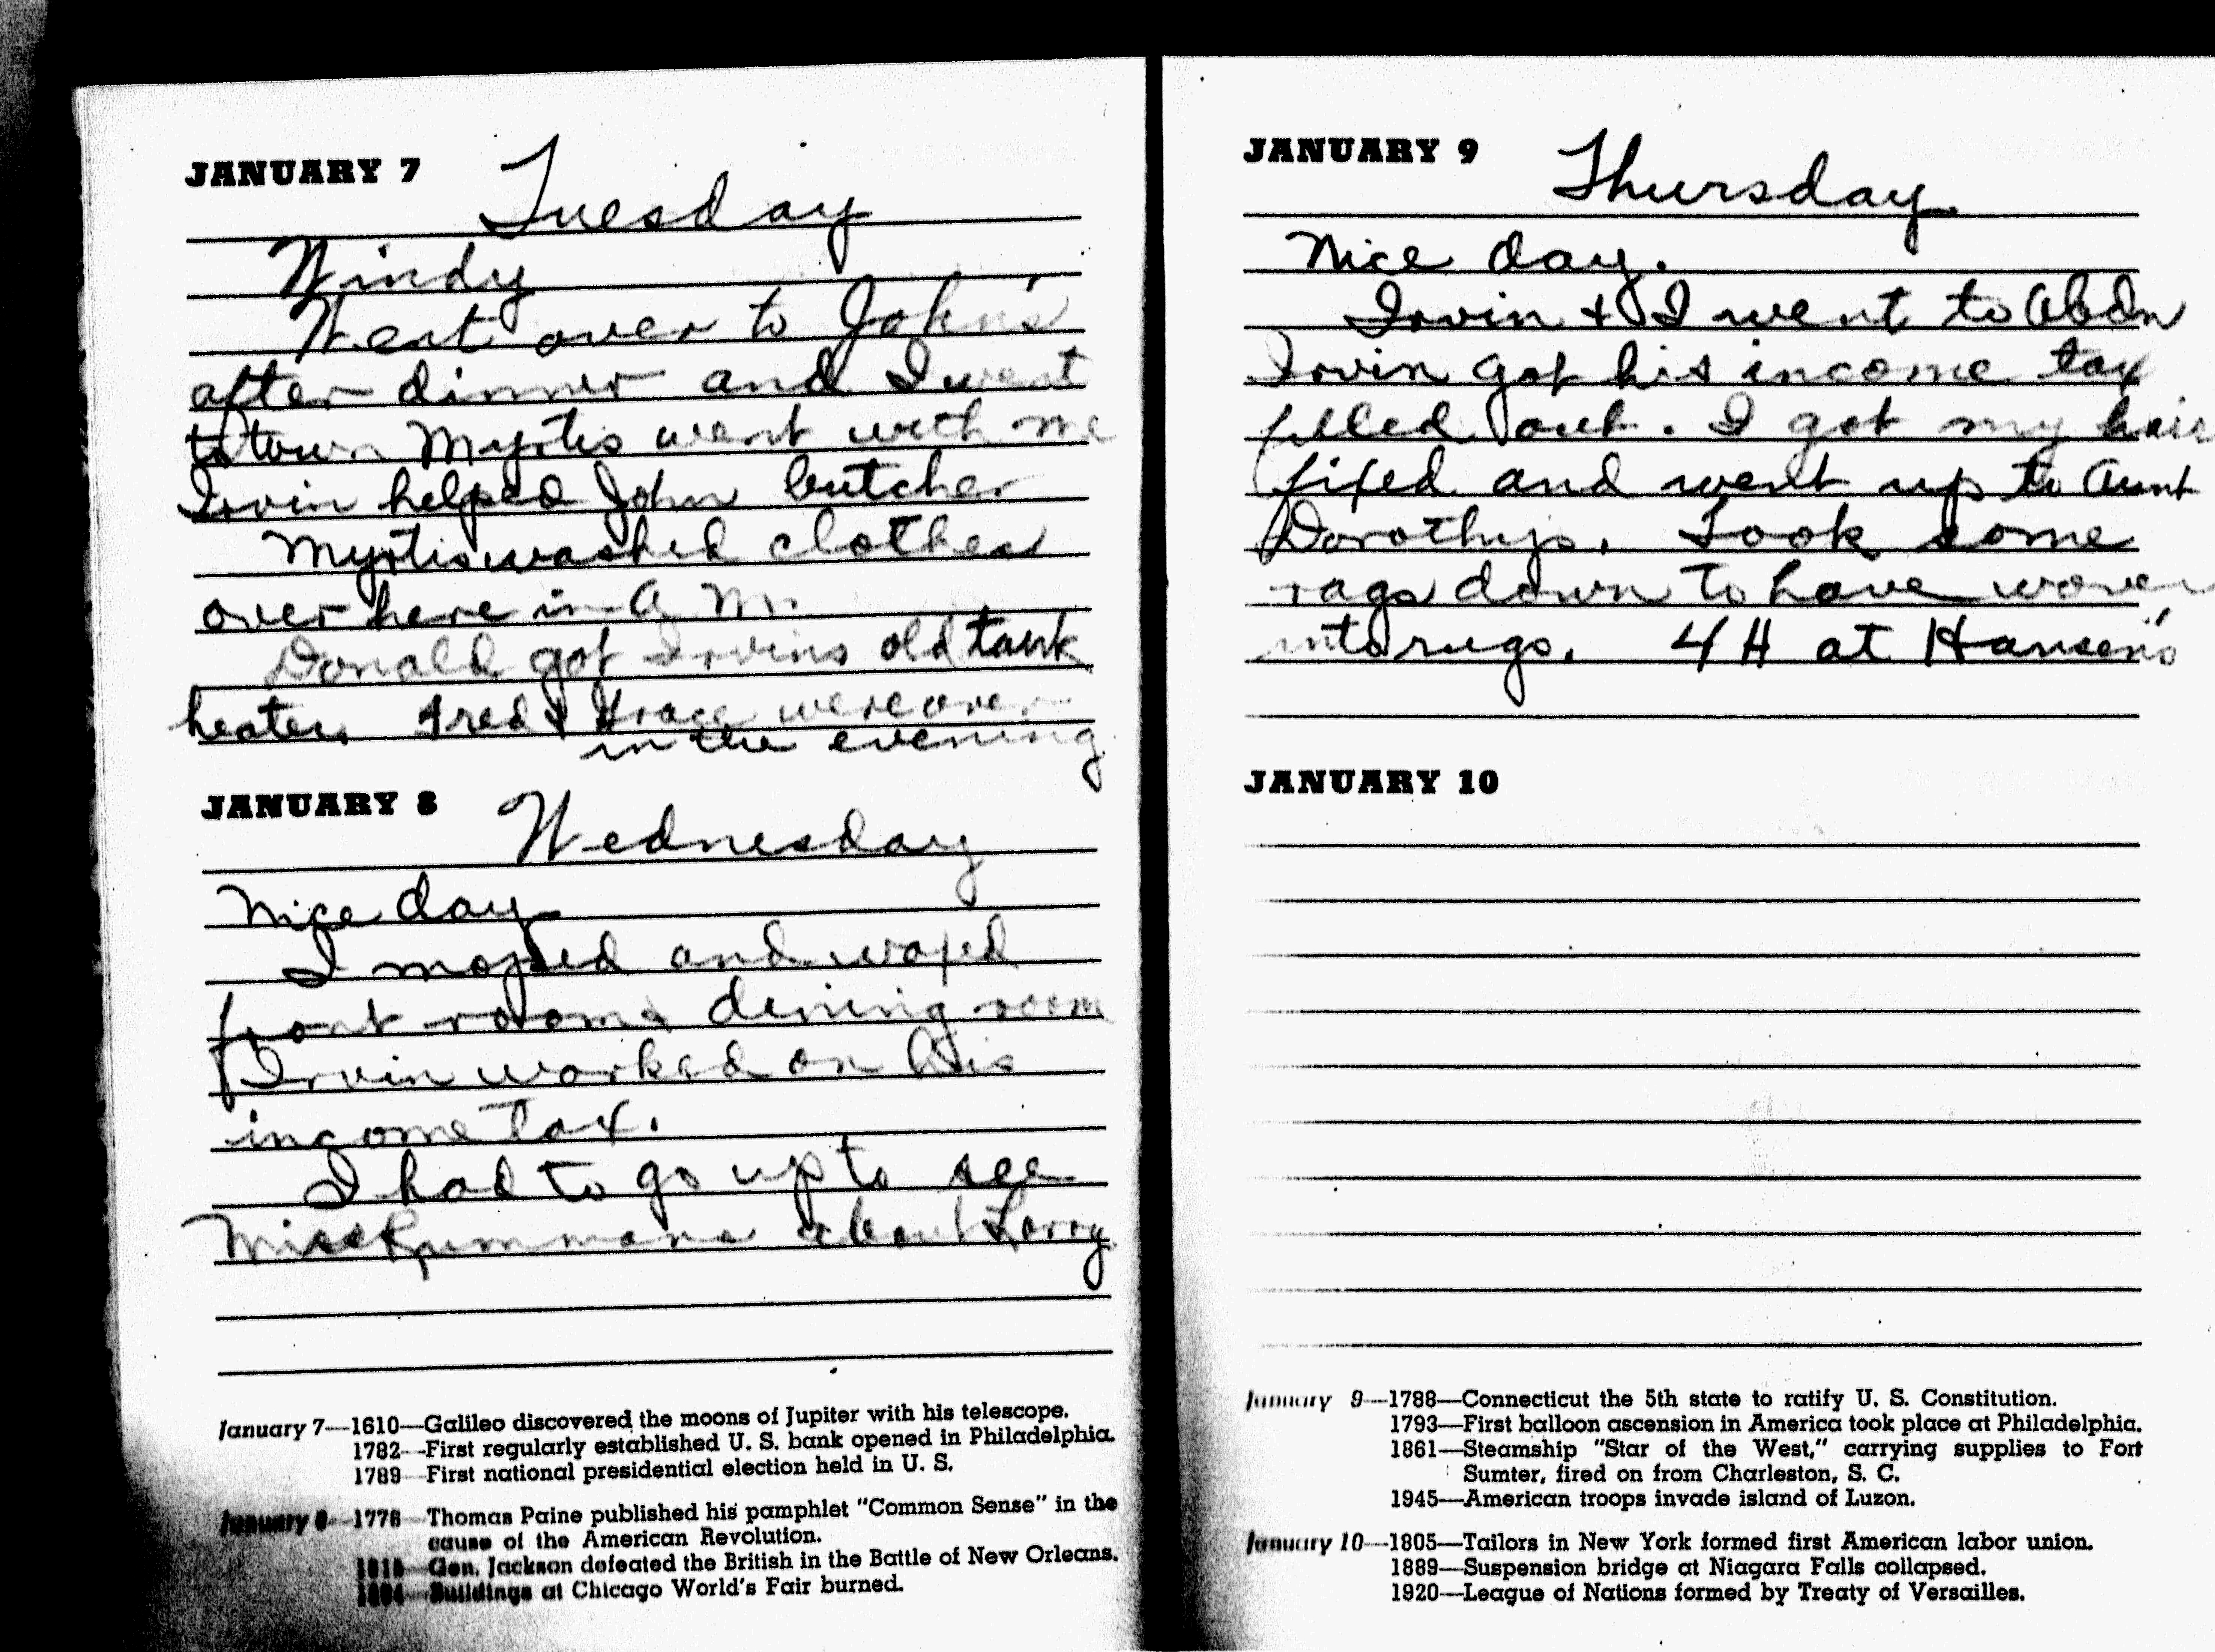 JANUARY 7 Tuesday
Windy
Went over to John's
after dinner and I went
to town Myrtis went with me
Irvin helped John butcher
Myrtis washed clothes
over here in A M.
Donald got Irvins old tank
heater. Fred & Grace were over
in the evening
JANUARY 8 Wednesday
Nice day
I moped and waxed
front room & dining room
Irvin worked on his
income tax.
I had to go up to see
Miss about Larry
January 7—1610—Galileo discovered the moons of Jupiter with his telescope.
1782—First regularly established U. S. bank opened in Philadelphia.
1789—First national presidential election held in U. S.
January 8—1776—Thomas Paine published his pamphlet "Common Sense" in the
cause of the American Revolution.
1815—Gen. Jackson defeated the British in the Battle of New Orleans.
1894—Buildings at Chicago World's Fair burned.
JANUARY 9 Thursday
Nice day.
Irvin & I went to Abdn
Irvin got his income tax
filled out. I got my hair
fixed and went up to Aunt
Dorothys. Took some
rags down to have woven
into rugs. 4 H at Hansen's
JANUARY 10
January 9—1788—Connecticut the 5th state to ratify U. S. Constitution.
1793—First balloon ascension in America took place at Philadelphia.
1861—Steamship "Star of the West," carrying supplies to Fort
Sumter, fired on from Charleston, S. C.
1945—American troops invade island of Luzon.
January 10—1805—Tailors in New York formed first American labor union.
1889—Suspension bridge at Niagara Falls collapsed.
1920—League of Nations formed by Treaty of Versailles.